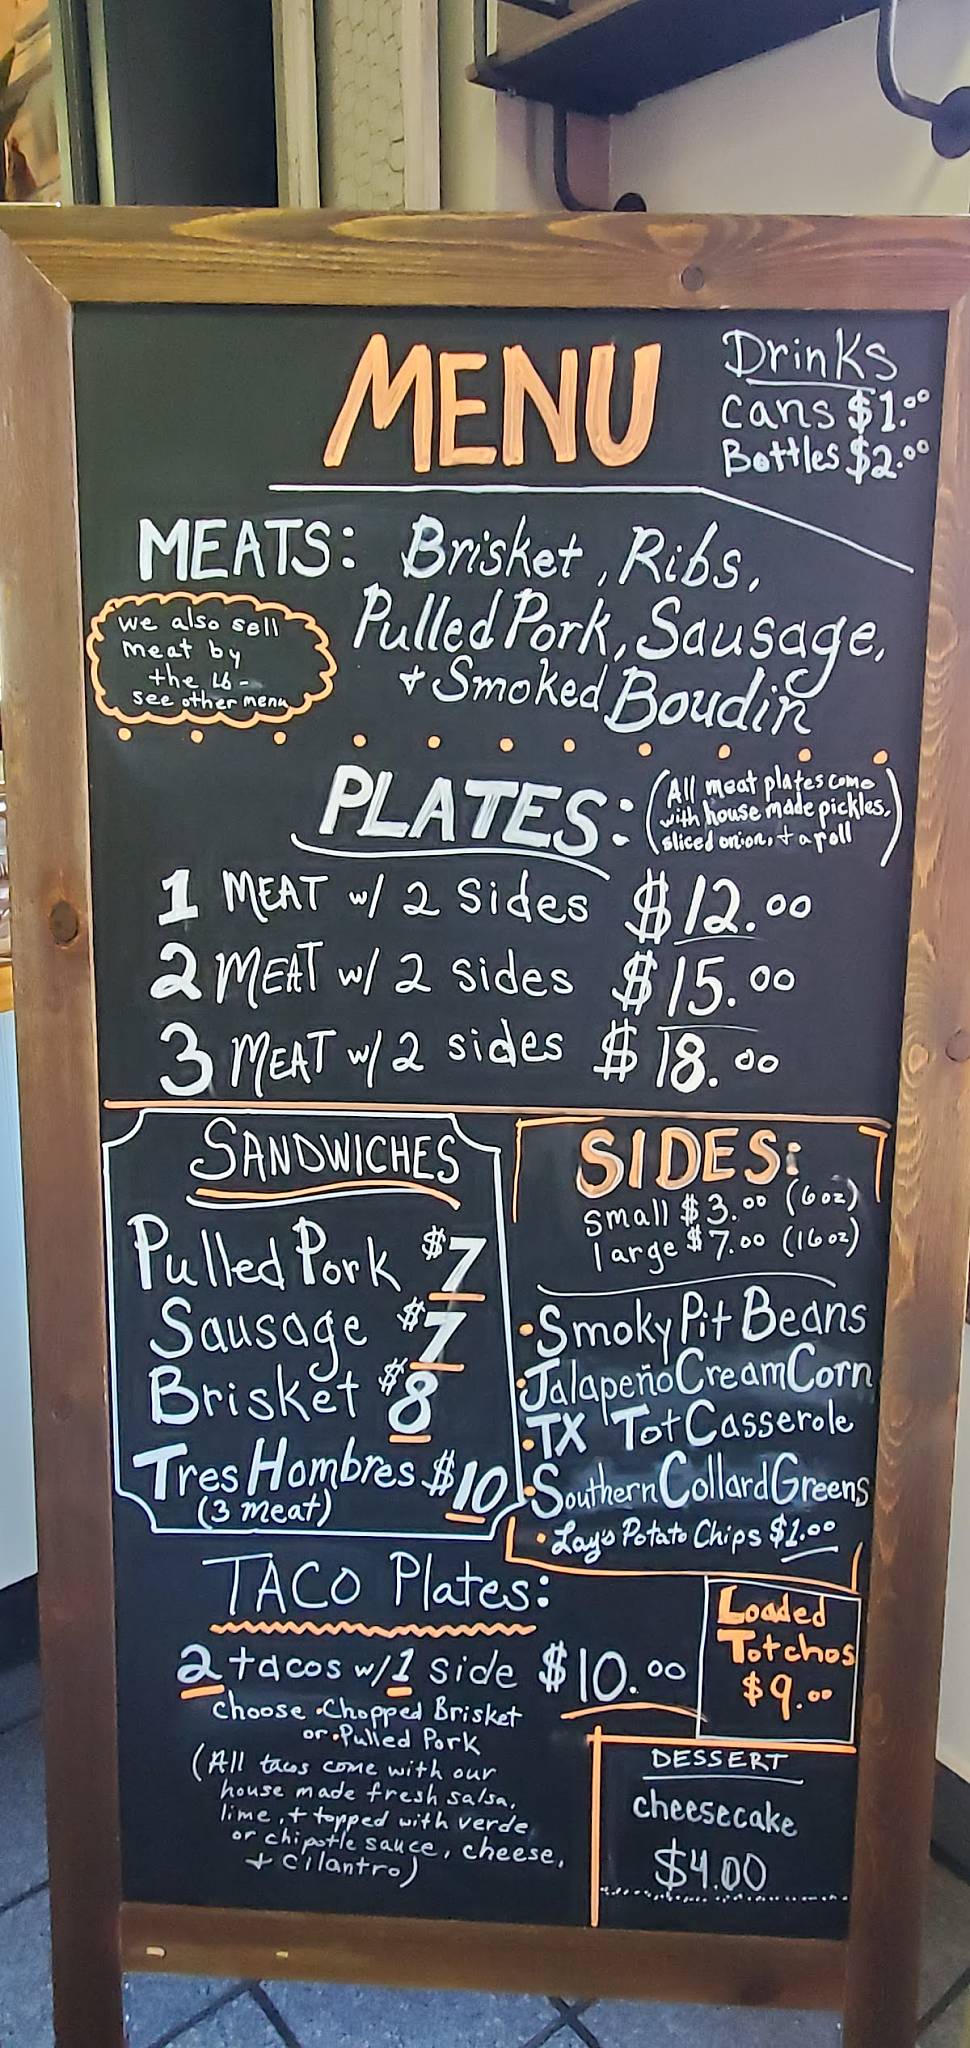 MENU
Drinks
cans $1.00
Bottles $2.00
MEATS: Brisket, Ribs,
Pulled Pork, Sausage,
+ Smoked Boudin
we also sell
meat by
the lb -
see other menu
PLATES:
(All meat plates come
with house made pickles,
sliced onion, + a roll)
1 MEAT w/ 2 sides $12.00
2 MEAT w/ 2 sides $15.00
3 MEAT w/ 2 sides $18.00
SANDWICHES
Pulled Pork $7
Sausage $7
Brisket $8
Tres Hombres $10
(3 meat)
SIDES:
small $3.00 (6oz)
large $7.00 (16oz)
• Smoky Pit Beans
• Jalapeño Cream Corn
• TX Tot Casserole
• Southern Collard Greens
• Lay's Potato Chips $1.00
TACO Plates:
2 tacos w/ 1 side $10.00
choose • Chopped Brisket
or • Pulled Pork
(All tacos come with our
house made fresh salsa,
lime, + topped with verde
or chipotle sauce, cheese,
+ cilantro)
Loaded
Totchos
$9.00
DESSERT
cheesecake
$4.00